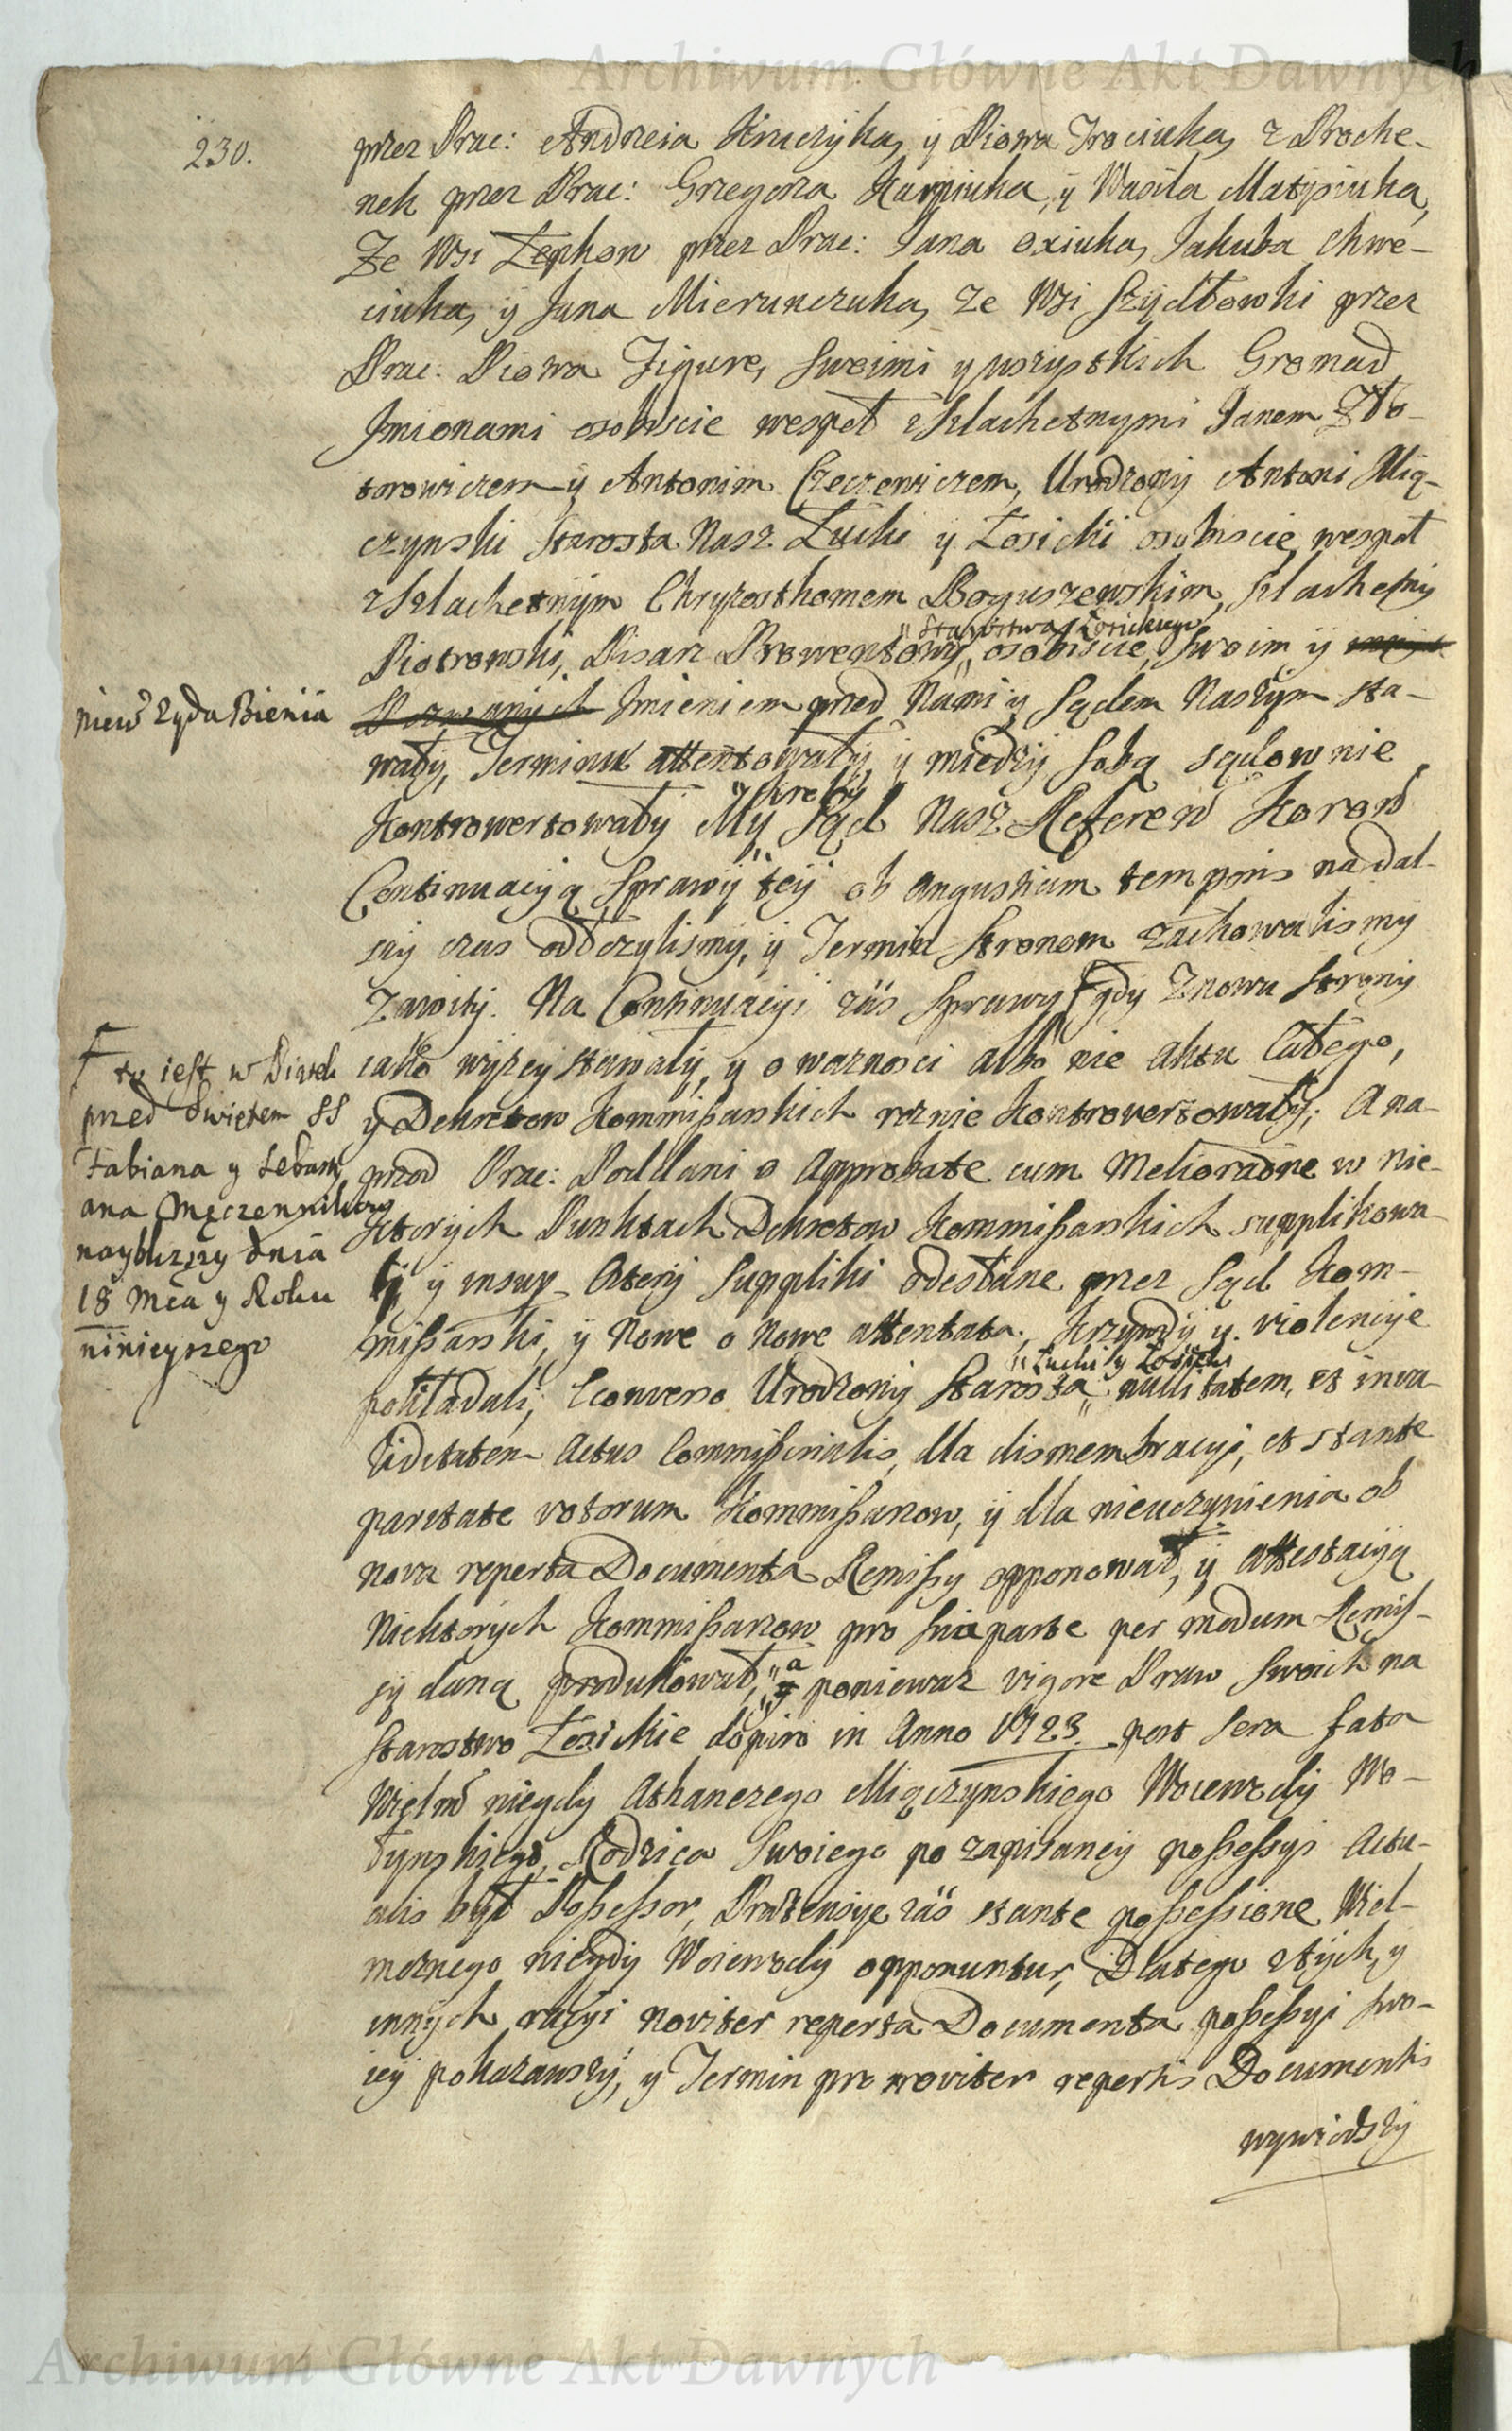 Archiwum Główne Akt Dawnych
230.
przez Prac: Andrzeia Kruczyka, y Piotra Trociuka, z Proche-
nek przez Prac: Grzegorza Karpiuka, y Wasila Matysiuka,
Ze Wsi Łepkow przez Prac: Jana Oxiuka, Jakuba Chwe-
ciuka, y Jana Mierunczuka, ze Wsi Szydłowki przez
Prac: Piotra Figure, Swoimi y wszystkich Gromad
Jmionami osobiscie wespoł z Szlachetnymi Janem Zło-
torowiczem y Antonim Czeczewiczem, Urodzony Antoni Mią-
czynski Starosta Nasz Łucki y Łosicki osobiscie, wespoł
z Szlachetnym Chryzosthomem Boguszewskim, Szlachetny
" Starostwa Łosickiego
Piotrowski, Pisarz Prowentowy, osobiscie, Swoim y
niew Zyda Bienia
Jmieniem przed Nami y Sądem Naszym sta-
wały, Terminu attentowały, y miedzy Sobą sądownie
Kontrowertowały My Sąd Nasz Referen Koron
Continuacyą Sprawy tey ob angustiam temporis na dal-
szy czas odłozylismy, y Termin Stronom zachowalismy
Zawity. Na Continuacyi zas Sprawy gdy Znowu Strony
to iest w Piątek
przed Swiętem SS
Fabiana y Sebasty
ana Męczennikow
nayblizszy dnia
18 Mca y Roku
ninieyszego
iako wyzey stawały, y o waznosci albo nie aktu Całego,
y Dekretow Kommissarskich roznie Kontrovertowały; A na-
przod Prac: Poddani o Approbate cum Melioratione w nie-
ktorych Punktach Dekretow Kommissarskich supplikowa-
ly y insup Ctery Suppliki odesłane przez Sąd Kom-
missarski, y Nowe o Nowe attentata, Krzywdy y violencye
" Łucki y Łosicki
pokładali; Econverso Urodzony Starosta nullitatem, et inva-
liditatem Actus Commissorialis, dla dismembracyi, et stante
paritate votorum Kommissarzow, y dla nieuczynienia ob
nova reperta Documenta Remissy opponował, y attestacyą
Niektorych Kommissarzow pro Sua parte per modum Remis-
sy daną produkował, a poniewaz vigore Praw Swoich na
Starostwo Łosickie dopiro in Anno 1723. post Sera fata
Wielm niegdy Athanezego Miączynskiego Woiewody Wo-
łynskiego, Rodzica Swoiego po zapisaney possessyi Actu-
alis był Possessor, Prætensye zas stante possessione Wiel-
moznego niegdy Woiewody opponuntur, Dlatego z tych, y
innych racyi noviter reperta Documenta possessyi Swo-
iey pokazawszy, y Termin pro noviter repertis Documentis
wywiodszy
Archiwum Główne Akt Dawnych